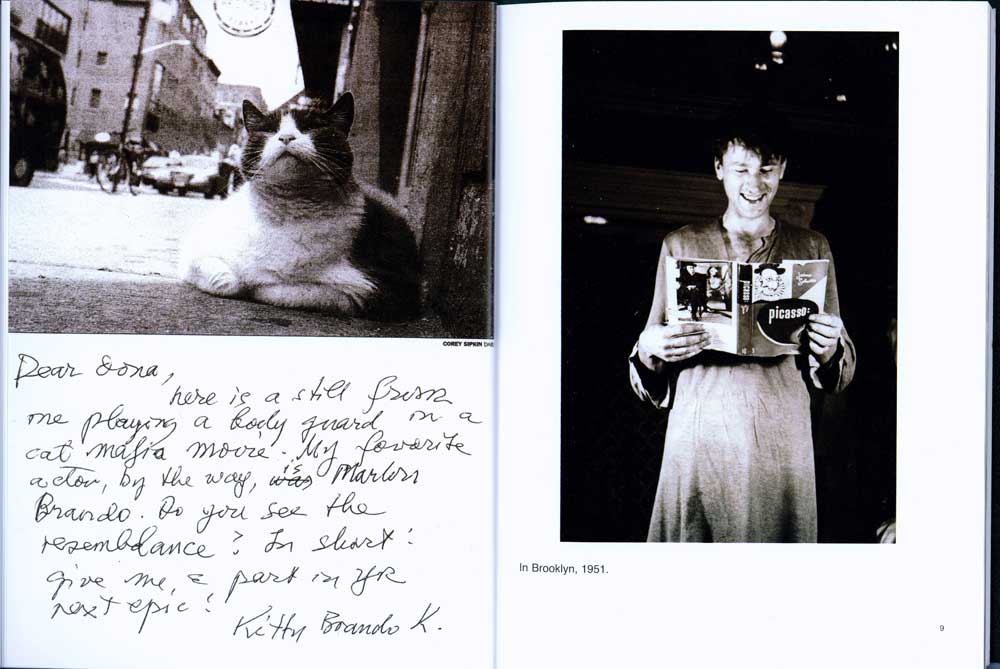 COREY SIPKIN
Dear Oona,
here is a still from
me playing a body guard in a
cat mafia movie. My favorite
actor, by the way, was is Marlon
Brando. Do you see the
resemblance? In short:
give me a part in yr
next epic!
Kitty Brando K.
picasso:
picasso
In Brooklyn, 1951.
9